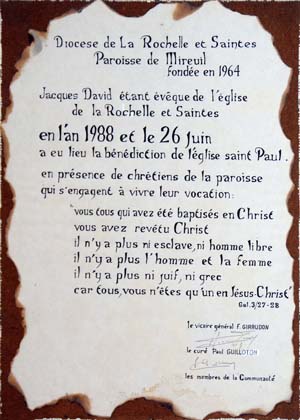 Diocese de La Rochelle et Saintes
Paroisse de Mireuil
fondée en 1964
Jacques David étant évêque de l'église
de la Rochelle et Saintes
en l'an 1988 et le 26 juin
a eu lieu la bénédiction de l'église saint Paul.
en présence de chrétiens de la paroisse
qui s'engagent à vivre leur vocation:
vous tous qui avez été baptisés en Christ
vous avez revêtu Christ
il n'y a plus ni esclave, ni homme libre
il n'y a plus l'homme et la femme
il n'y a plus ni juif, ni grec
car tous, vous n'êtes qu'un en Jésus-Christ"
Gal. 3/27-28
le vicaire général F. GIRAUDON
le curé Paul GUILLOTON
les membres de la Communauté